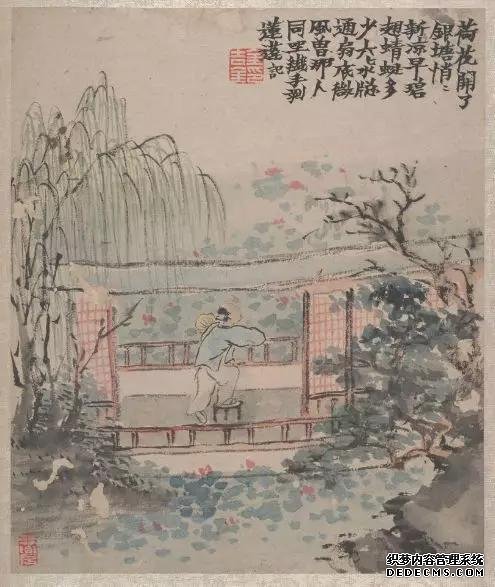 荷花開了
銀塘悄〻
新涼早碧
翅蜻蜓多
少六〻水牕
通扇底微
風曾那人
同坐纖手剥
蓮蓬記
织梦内容管理系统
DEDECMS.COM